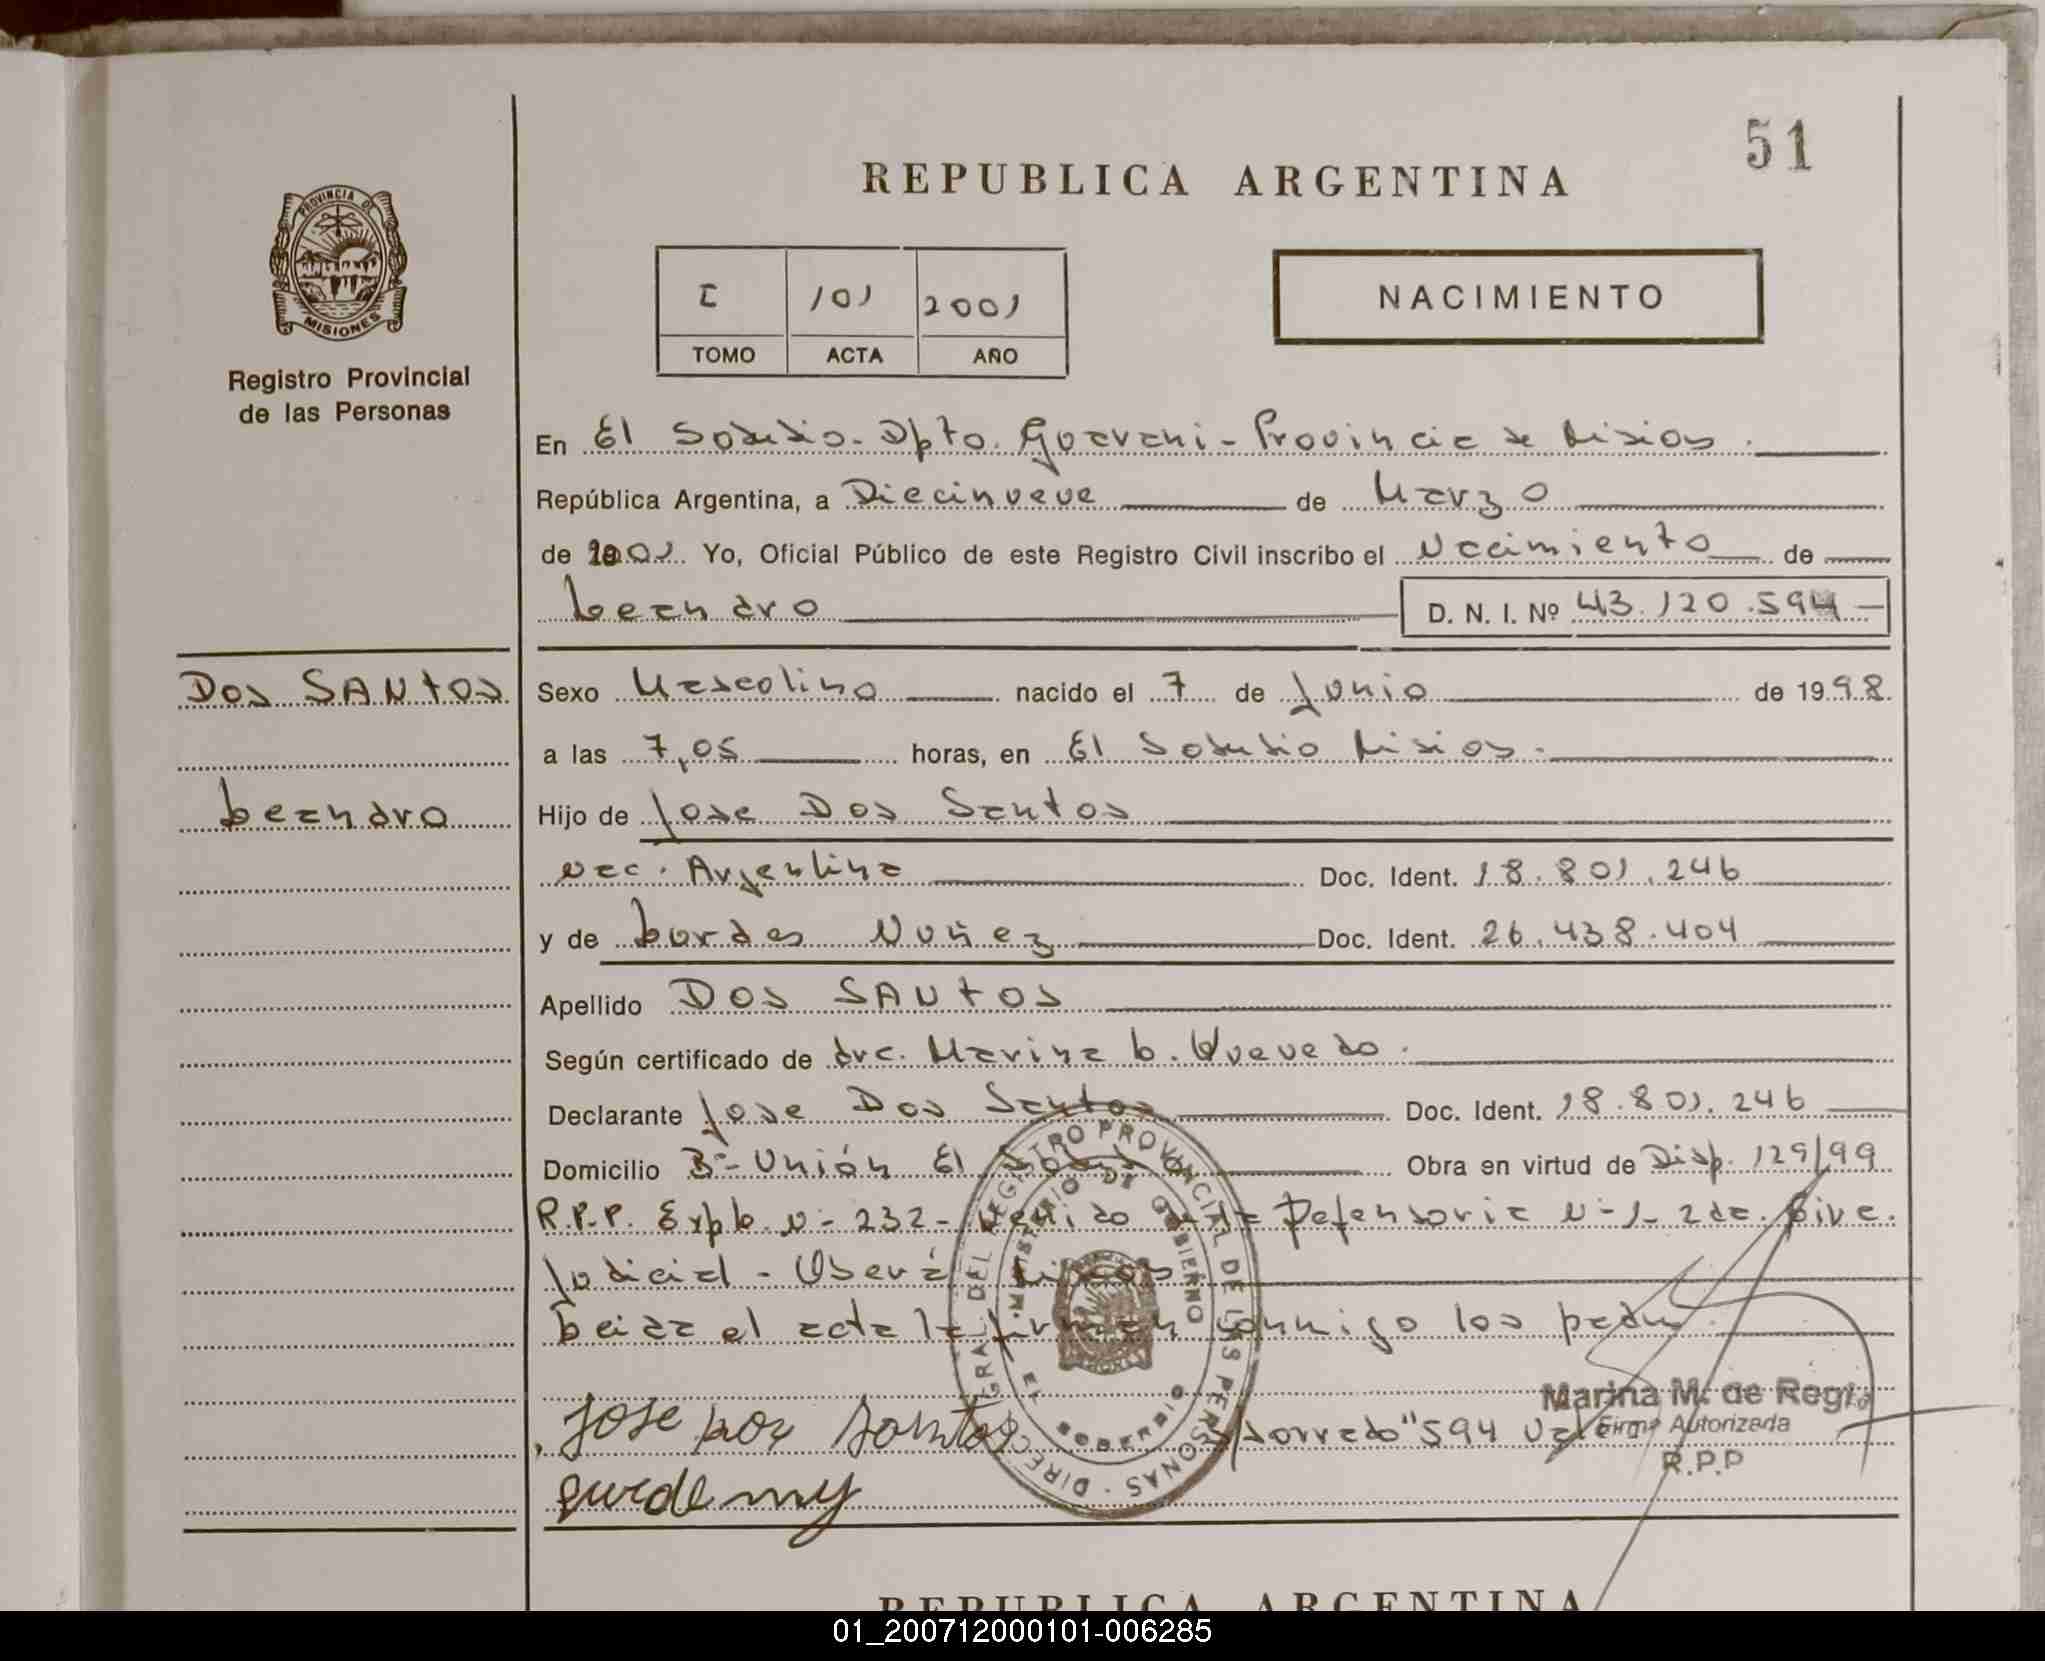 51
REPUBLICA ARGENTINA
PROVINCIA DE
MISIONES
Registro Provincial
de las Personas
I 101 2001
TOMO ACTA AÑO
NACIMIENTO
En El Soberbio - Dpto. Guarani - Provincia de Misiones.
República Argentina, a Diecinueve de Marzo
de 2001 Yo, Oficial Público de este Registro Civil inscribo el Nacimiento de
Leandro D. N. I. Nº 43.120.594 -
Dos SANtos Sexo Masculino nacido el 7 de Junio de 1998
a las 7,05 horas, en El Soberbio Misiones.
Leandro Hijo de Jose Dos Santos
nac. Argentina Doc. Ident. 18.801.246
y de Lurdes Nuñez Doc. Ident. 26.438.404
Apellido DOS SANtOS
Según certificado de dra. Marina L. Quevedo.
Declarante Jose Dos Santos Doc. Ident. 18.801.246
Domicilio Bº- Unión El Soberbio Obra en virtud de Disp. 129/99
R.P.P. Expte. N- 232- Venido de la Defensoria N-1- 2da.
Judicial - Oberá Misiones
Leida el acta la firman conmigo los padres.
Jose Dos Santos borrado "594 Vale
Marina M. de Regi
Firma Autorizada
R.P.P
DIRE GRAL DEL REGISTRO PROVINCIAL DE LAS PERSONAS
MINISTERIO DE GOBIERNO
EL SOBERBIO
REPUBLICA ARGENTINA
01_200712000101-006285